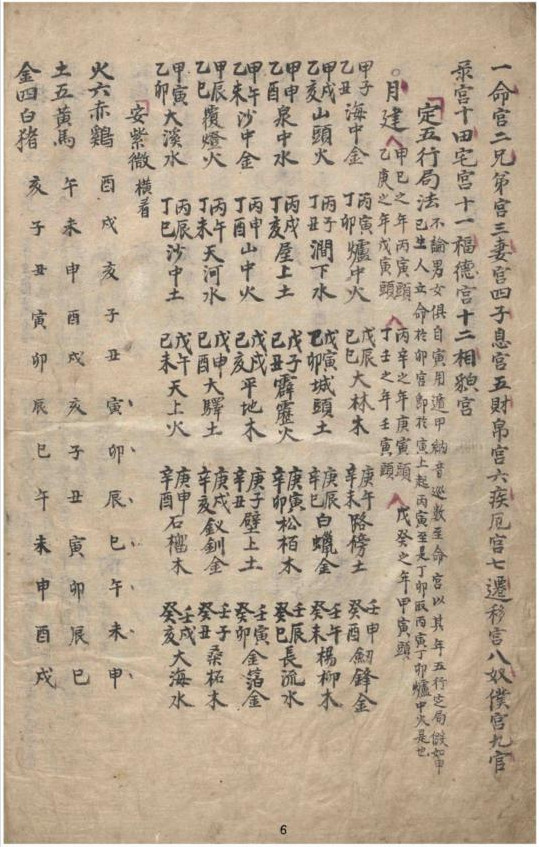 一命宮二兄弟宮三妻宮四子息宮五財帛宮六疾厄宮七遷移宮八奴僕宮九官
祿宮十田宅宮十一福德宮十二相貌宮
定五行局法 不論男女俱自寅用遁甲納音巡數至命宮以其年五行定局假如甲
己生人立命於卯宮即於寅上起丙寅至是丁卯取丙寅丁卯爐中火是也
月建 甲己之年丙寅頭 丙辛之年庚寅頭 戊癸之年甲寅頭
乙庚之年戊寅頭 丁壬之年壬寅頭
甲子乙丑海中金 丙寅丁卯爐中火 戊辰己巳大林木 庚午辛未路傍土 壬申癸酉劒鋒金
甲戌乙亥山頭火 丙子丁丑澗下水 戊寅己卯城頭土 庚辰辛巳白蠟金 壬午癸未楊柳木
甲申乙酉泉中水 丙戌丁亥屋上土 戊子己丑霹靂火 庚寅辛卯松栢木 壬辰癸巳長流水
甲午乙未沙中金 丙申丁酉山中火 戊戌己亥平地木 庚子辛丑壁上土 壬寅癸卯金箔金
甲辰乙巳覆燈火 丙午丁未天河水 戊申己酉大驛土 庚戌辛亥釵釧金 壬子癸丑桑柘木
甲寅乙卯大溪水 丙辰丁巳沙中土 戊午己未天上火 庚申辛酉石榴木 壬戌癸亥大海水
安紫微 橫看
火六赤鷄 酉戌亥子丑寅卯辰巳午未申
土五黃馬 午未申酉戌亥子丑寅卯辰巳
金四白猪 亥子丑寅卯辰巳午未申酉戌
6